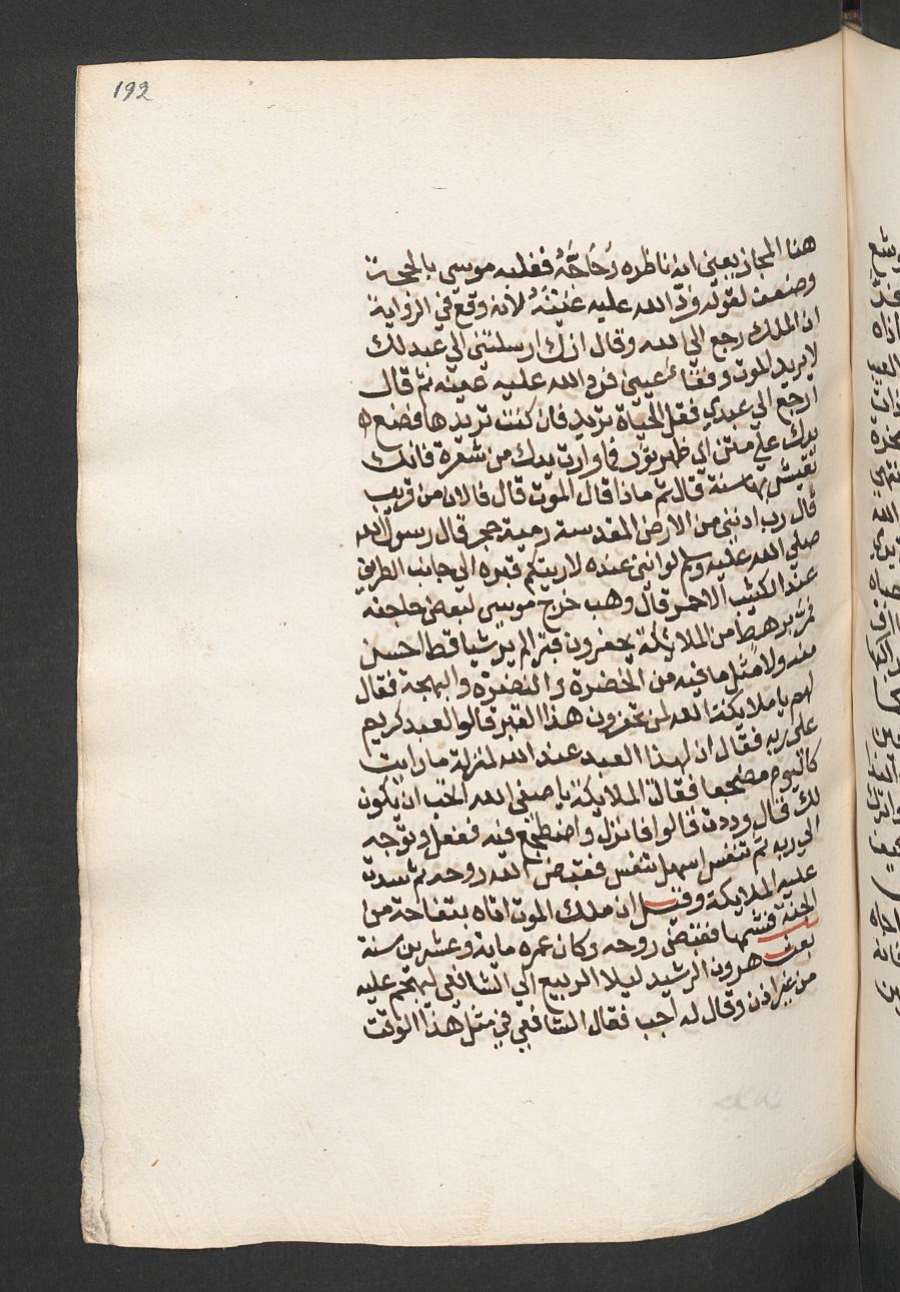 192
هنا المجاز يعني انه ناظره وَحَاجَّهُ فغلبه موسى بالحجة
وضعف لقوله ورَدّ الله عليه عَيْنَهُ لأنه وقع في الرواية
ان الملك رجع الي الله وقال انك ارسلتني الي عبد لك
لا يريد الموت وفقأ عيني فرد الله عليه عينه ثم قال
ارجع الي عبدي فقل الحياة تريد فان كنت تريدها فضع
يدك علي متن اي ظهر ثور فما وارت يدك من شعرة فانك
تعيش بها سنة قال ثم ماذا قال الموت قال فالان من قريب
قال رب ادنني من الارض المقدسة رمية حجر قال رسول الله
صلي الله عليه وسلم لو انني عنده لاريتكم قبره الي جانب الطريق
عند الكثيب الاحمر قال وهب خرج موسي لبعض حاجته
فمر برهط من الملائكة يحفرون قبرا لم ير شيا قط احسن
منه ولا مثل ما فيه من الخضرة والنضرة والبهجة فقال
لهم يا ملايكة الله لمن تحفرون هذا القبر قالوا لعبد كريم
على ربه فقال ان لهذا العبد عند الله لمنزلة ما رايت
كاليوم مضجعا فقالت الملايكة يا صفي الله اتحب ان يكون
لك قال وددت قالوا فانزل واضطجع فيه ففعل وتوجه
الي ربه ثم تنفس اسهل تنفس فقبض الله روحه ثم سدت
عليه الملايكة وقيل ان ملك الموت اتاه بتفاحة من
الجنة فشمها فقبض روحه وكان عمره ماية وعشرين سنة
بعث هرون الرشيد ليلا الربيع الي الشافعي ليهجم عليه
من غير اذن وقال له اجب فقال الشافعي في مثل هذا الوقت